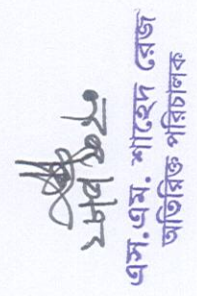 এস.এম. শাহেদ রেজা
অতিরিক্ত পরিচালক